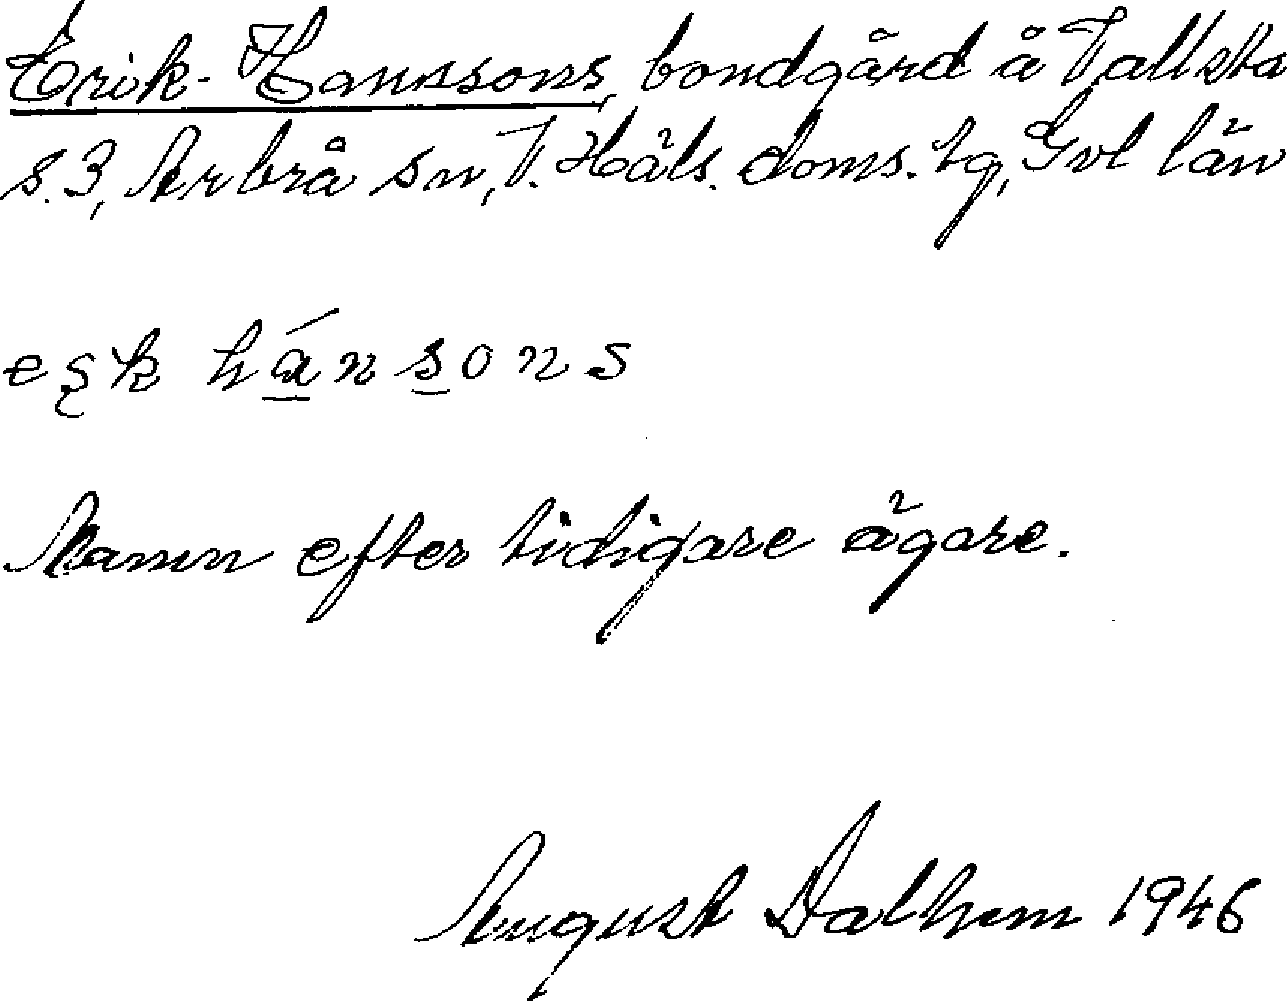 Erik-Hanssons, bondgård å Vallsta
s. 3, Arbrå sn, V. Häls. doms. tg, Gvl län
hánsons
Namn efter tidigare ägare.
August Dalhem 1946